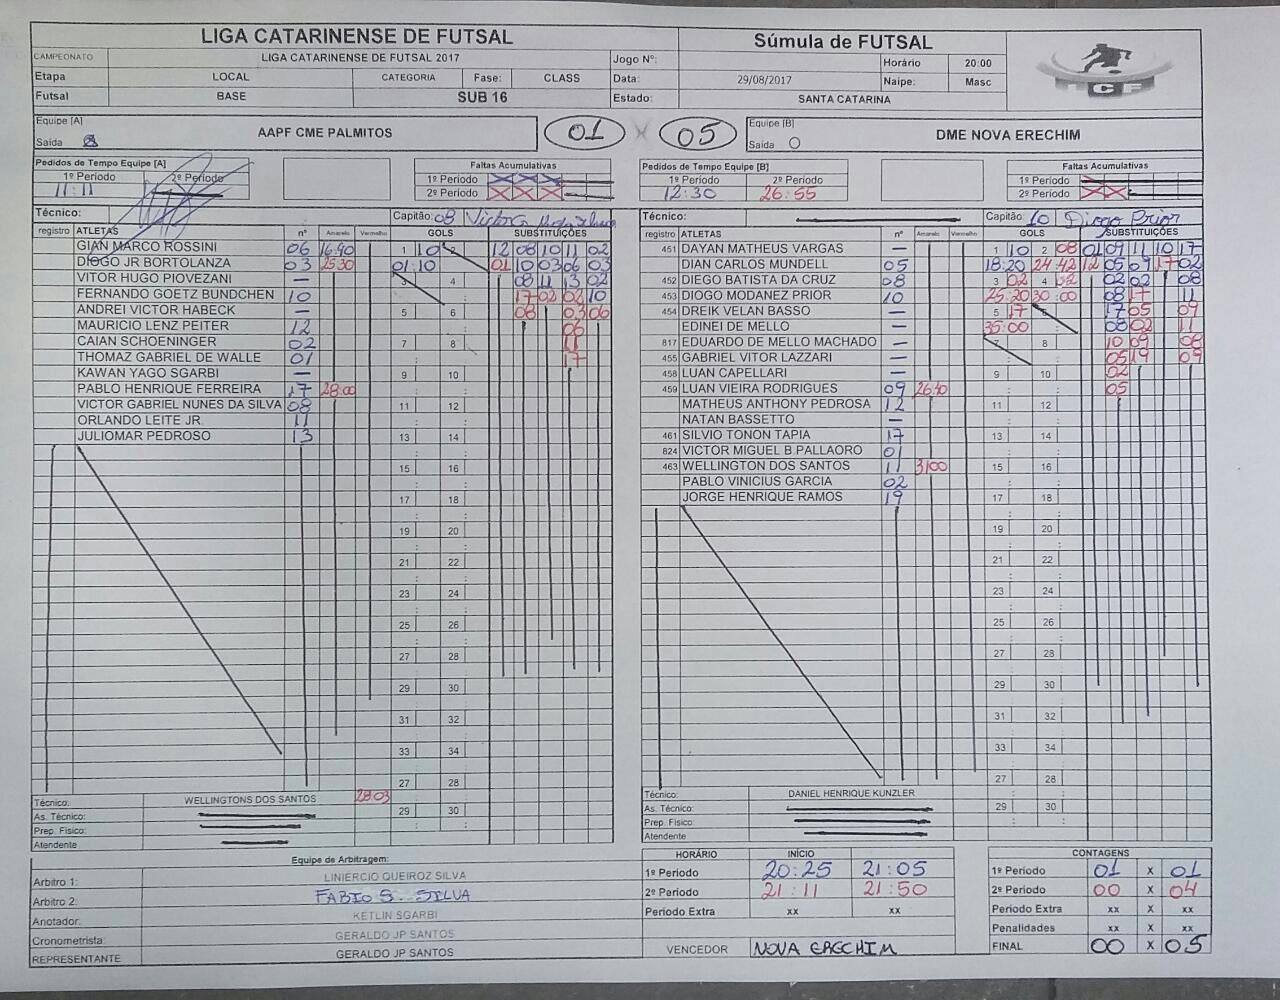 LIGA CATARINENSE DE FUTSAL
CAMPEONATO LIGA CATARINENSE DE FUTSAL 2017
Etapa LOCAL CATEGORIA Fase: CLASS
Futsal BASE SUB 16
Súmula de FUTSAL
Jogo Nº: Horário 20:00
Data: 29/08/2017 Naipe: Masc
Estado: SANTA CATARINA
Equipe [A] AAPF CME PALMITOS 01 X 05 Equipe [B] DME NOVA ERECHIM
Saida Saida
Pedidos de Tempo Equipe [A] Faltas Acumulativas
1º Periodo 2º Periodo 1º Periodo
11:11 2º Periodo
Pedidos de Tempo Equipe [B] Faltas Acumulativas
1º Periodo 2º Periodo 1º Periodo
12:30 26:55 2º Periodo
Técnico: Capitão: 08
registro ATLETAS nº Amarelo Vermelho GOLS SUBSTITUIÇÕES
GIAN MARCO ROSSINI 06 16:40 1 10 2 12 08 10 11 02
DIOGO JR BORTOLANZA 03 25:30 01:10 01 10 03 06 03
VITOR HUGO PIOVEZANI — 3 4 08 11 13 02
FERNANDO GOETZ BUNDCHEN 10 17 02 02 10
ANDREI VICTOR HABECK — 5 6 08 03 06
MAURICIO LENZ PEITER 12 06
CAIAN SCHOENINGER 02 7 8 11
THOMAZ GABRIEL DE WALLE 01 17
KAWAN YAGO SGARBI — 9 10
PABLO HENRIQUE FERREIRA 17 28:00
VICTOR GABRIEL NUNES DA SILVA 08 11 12
ORLANDO LEITE JR 11
JULIOMAR PEDROSO 13 13 14
15 16
17 18
19 20
21 22
23 24
25 26
27 28
29 30
31 32
33 34
27 28
29 30
Técnico: WELLINGTONS DOS SANTOS 28:03
As. Técnico:
Prep. Fisico:
Atendente
Técnico: Capitão: 10 Diogo Prior
registro ATLETAS nº Amarelo Vermelho GOLS SUBSTITUIÇÕES
451 DAYAN MATHEUS VARGAS — 1 10 2 08 01 09 11 10 17
DIAN CARLOS MUNDELL 05 18:20 24:42 12 05 09 17 02
452 DIEGO BATISTA DA CRUZ 08 3 02 4 02 02 02 08
453 DIOGO MODANEZ PRIOR 10 25:20 30:00 08 17 11
454 DREIK VELAN BASSO — 5 17 6 17 05 09
EDINEI DE MELLO — 35:00 08 02 11
817 EDUARDO DE MELLO MACHADO — 7 8 10 09 08
455 GABRIEL VITOR LAZZARI — 05 19 09
458 LUAN CAPELLARI — 9 10 02
459 LUAN VIEIRA RODRIGUES 09 26:40 05
MATHEUS ANTHONY PEDROSA 12 11 12
NATAN BASSETTO —
461 SILVIO TONON TAPIA 17 13 14
824 VICTOR MIGUEL B PALLAORO 01
463 WELLINGTON DOS SANTOS 11 31:00 15 16
PABLO VINICIUS GARCIA 02
JORGE HENRIQUE RAMOS 19 17 18
19 20
21 22
23 24
25 26
27 28
29 30
31 32
33 34
27 28
29 30
Técnico: DANIEL HENRIQUE KUNZLER
As. Técnico:
Prep. Fisico:
Atendente
Equipe de Arbitragem:
Arbitro 1: LINIERCIO QUEIROZ SILVA
Arbitro 2: FABIO S. SILVA
Anotador: KETLIN SGARBI
Cronometrista: GERALDO JP SANTOS
REPRESENTANTE GERALDO JP SANTOS
HORÁRIO INÍCIO
1º Periodo 20:25 21:05
2º Periodo 21:11 21:50
Periodo Extra xx xx
VENCEDOR NOVA ERECHIM
CONTAGENS
1º Periodo 01 X 01
2º Periodo 00 X 04
Periodo Extra xx X xx
Penalidades xx X xx
FINAL 00 X 05